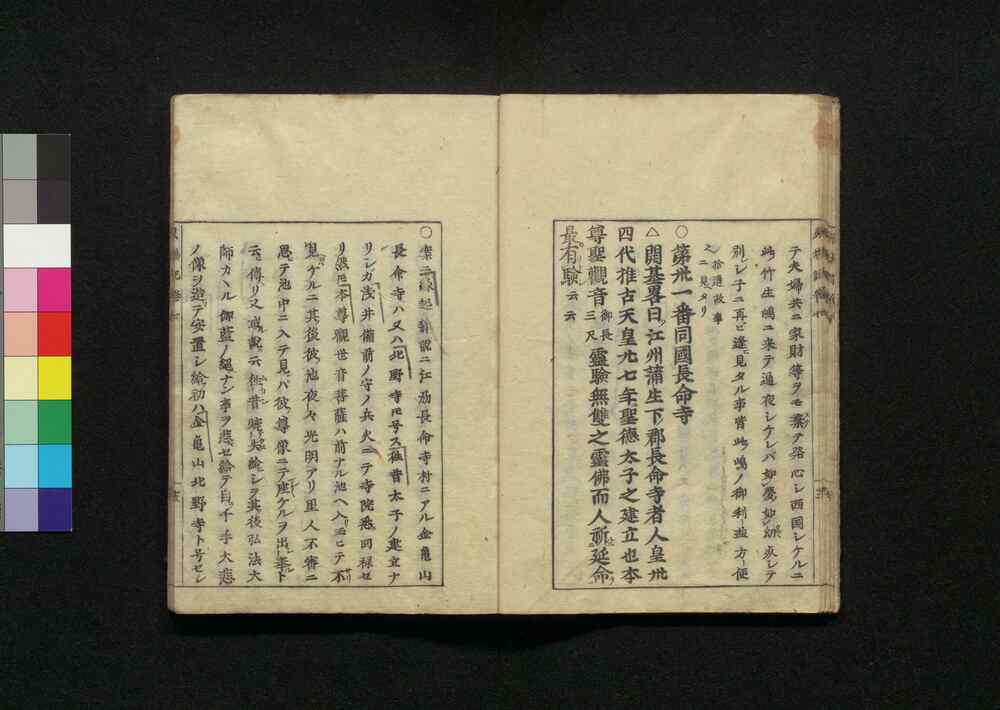 テ夫婦共ニ家財等ヲモ棄テ発心シ西国シケルニ
此竹生嶋ニ来テ通夜シケレバ如シテ
別レシ子ニ再ビ逢見タル事皆此嶋ノ御利益方便
拾遺故事
之ニ見タリ
○第卅一番同國長命寺
△開基畧曰江州蒲生下郡長命寺者人皇卅
四代推古天皇廿七年聖徳太子之建立也本
尊聖觀音御長三尺靈験無雙之靈佛而人祈延命
最有験云云
○案ニ縁起ニ江州長命寺村ニアル金亀山
長命寺ハ又ハ北野寺ト号ス往昔太子ノ建立ナ
リシカ浅井備前ノ守ノ兵火ニテ寺院悉回禄セ
リ然トモ本尊觀世音菩薩ハ前ナル池ヘ入玉ヒテ不
見ケルニ其後彼池夜々光明アリ里人不審ニ
思テ池中ニ入テ見レバ彼ノ尊像ニテ座ケルヲ出シ奉ト
云傳リ又云往昔焼失給シヲ其後弘法大
師カヽル伽藍ノ絶ナン事ヲ悲セ給テ自千手大悲
ノ像ヲ造テ安置シ給初ハ金亀山北野寺ト号セシ